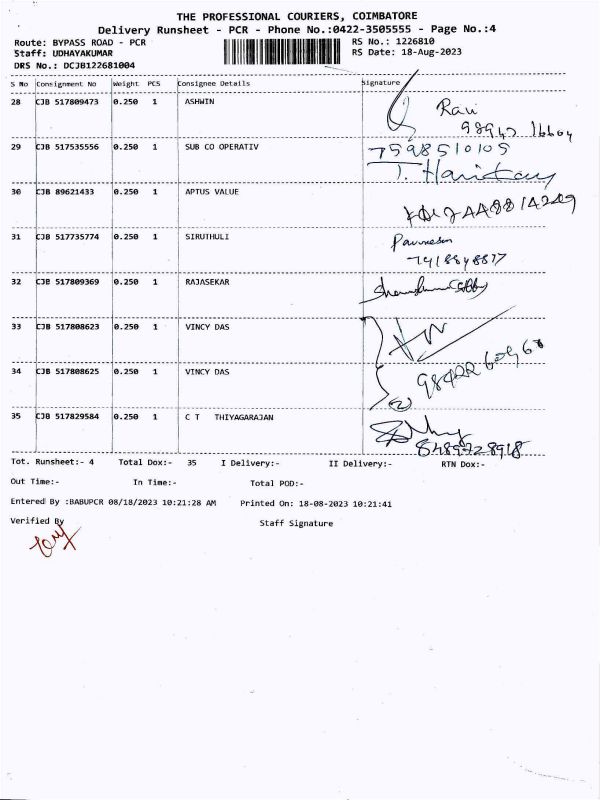 THE PROFESSIONAL COURIERS, COIMBATORE
Delivery Runsheet - PCR - Phone No.:0422-3505555 - Page No.:4
Route: BYPASS ROAD - PCR RS No.: 1226810
Staff: UDHAYAKUMAR RS Date: 18-Aug-2023
DRS No.: DCJB122681004
S No Consignment No Weight PCS Consignee Details Signature
28 CJB 517809473 0.250 1 ASHWIN
Ravi
29 CJB 517535556 0.250 1 SUB CO OPERATIV 7598510105
30 CJB 89621433 0.250 1 APTUS VALUE
31 CJB 517735774 0.250 1 SIRUTHULI
32 CJB 517809369 0.250 1 RAJASEKAR
33 CJB 517808623 0.250 1 VINCY DAS
34 CJB 517808625 0.250 1 VINCY DAS
35 CJB 517829584 0.250 1 C T THIYAGARAJAN
8489728918
Tot. Runsheet:- 4 Total Dox:- 35 I Delivery:- II Delivery:- RTN Dox:-
Out Time:- In Time:- Total POD:-
Entered By :BABUPCR 08/18/2023 10:21:28 AM Printed On: 18-08-2023 10:21:41
Verified By Staff Signature